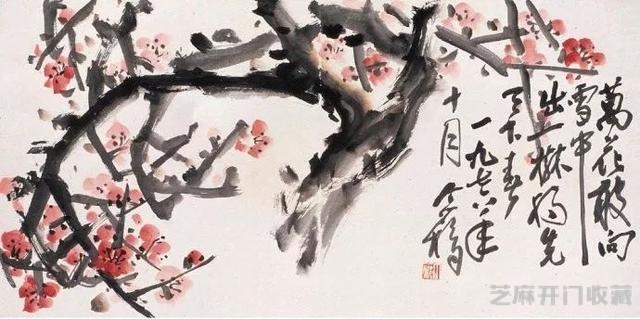 萬花敢向
雪中
出一樹独先
天下春
一九七八年
十月
芝麻开门收藏